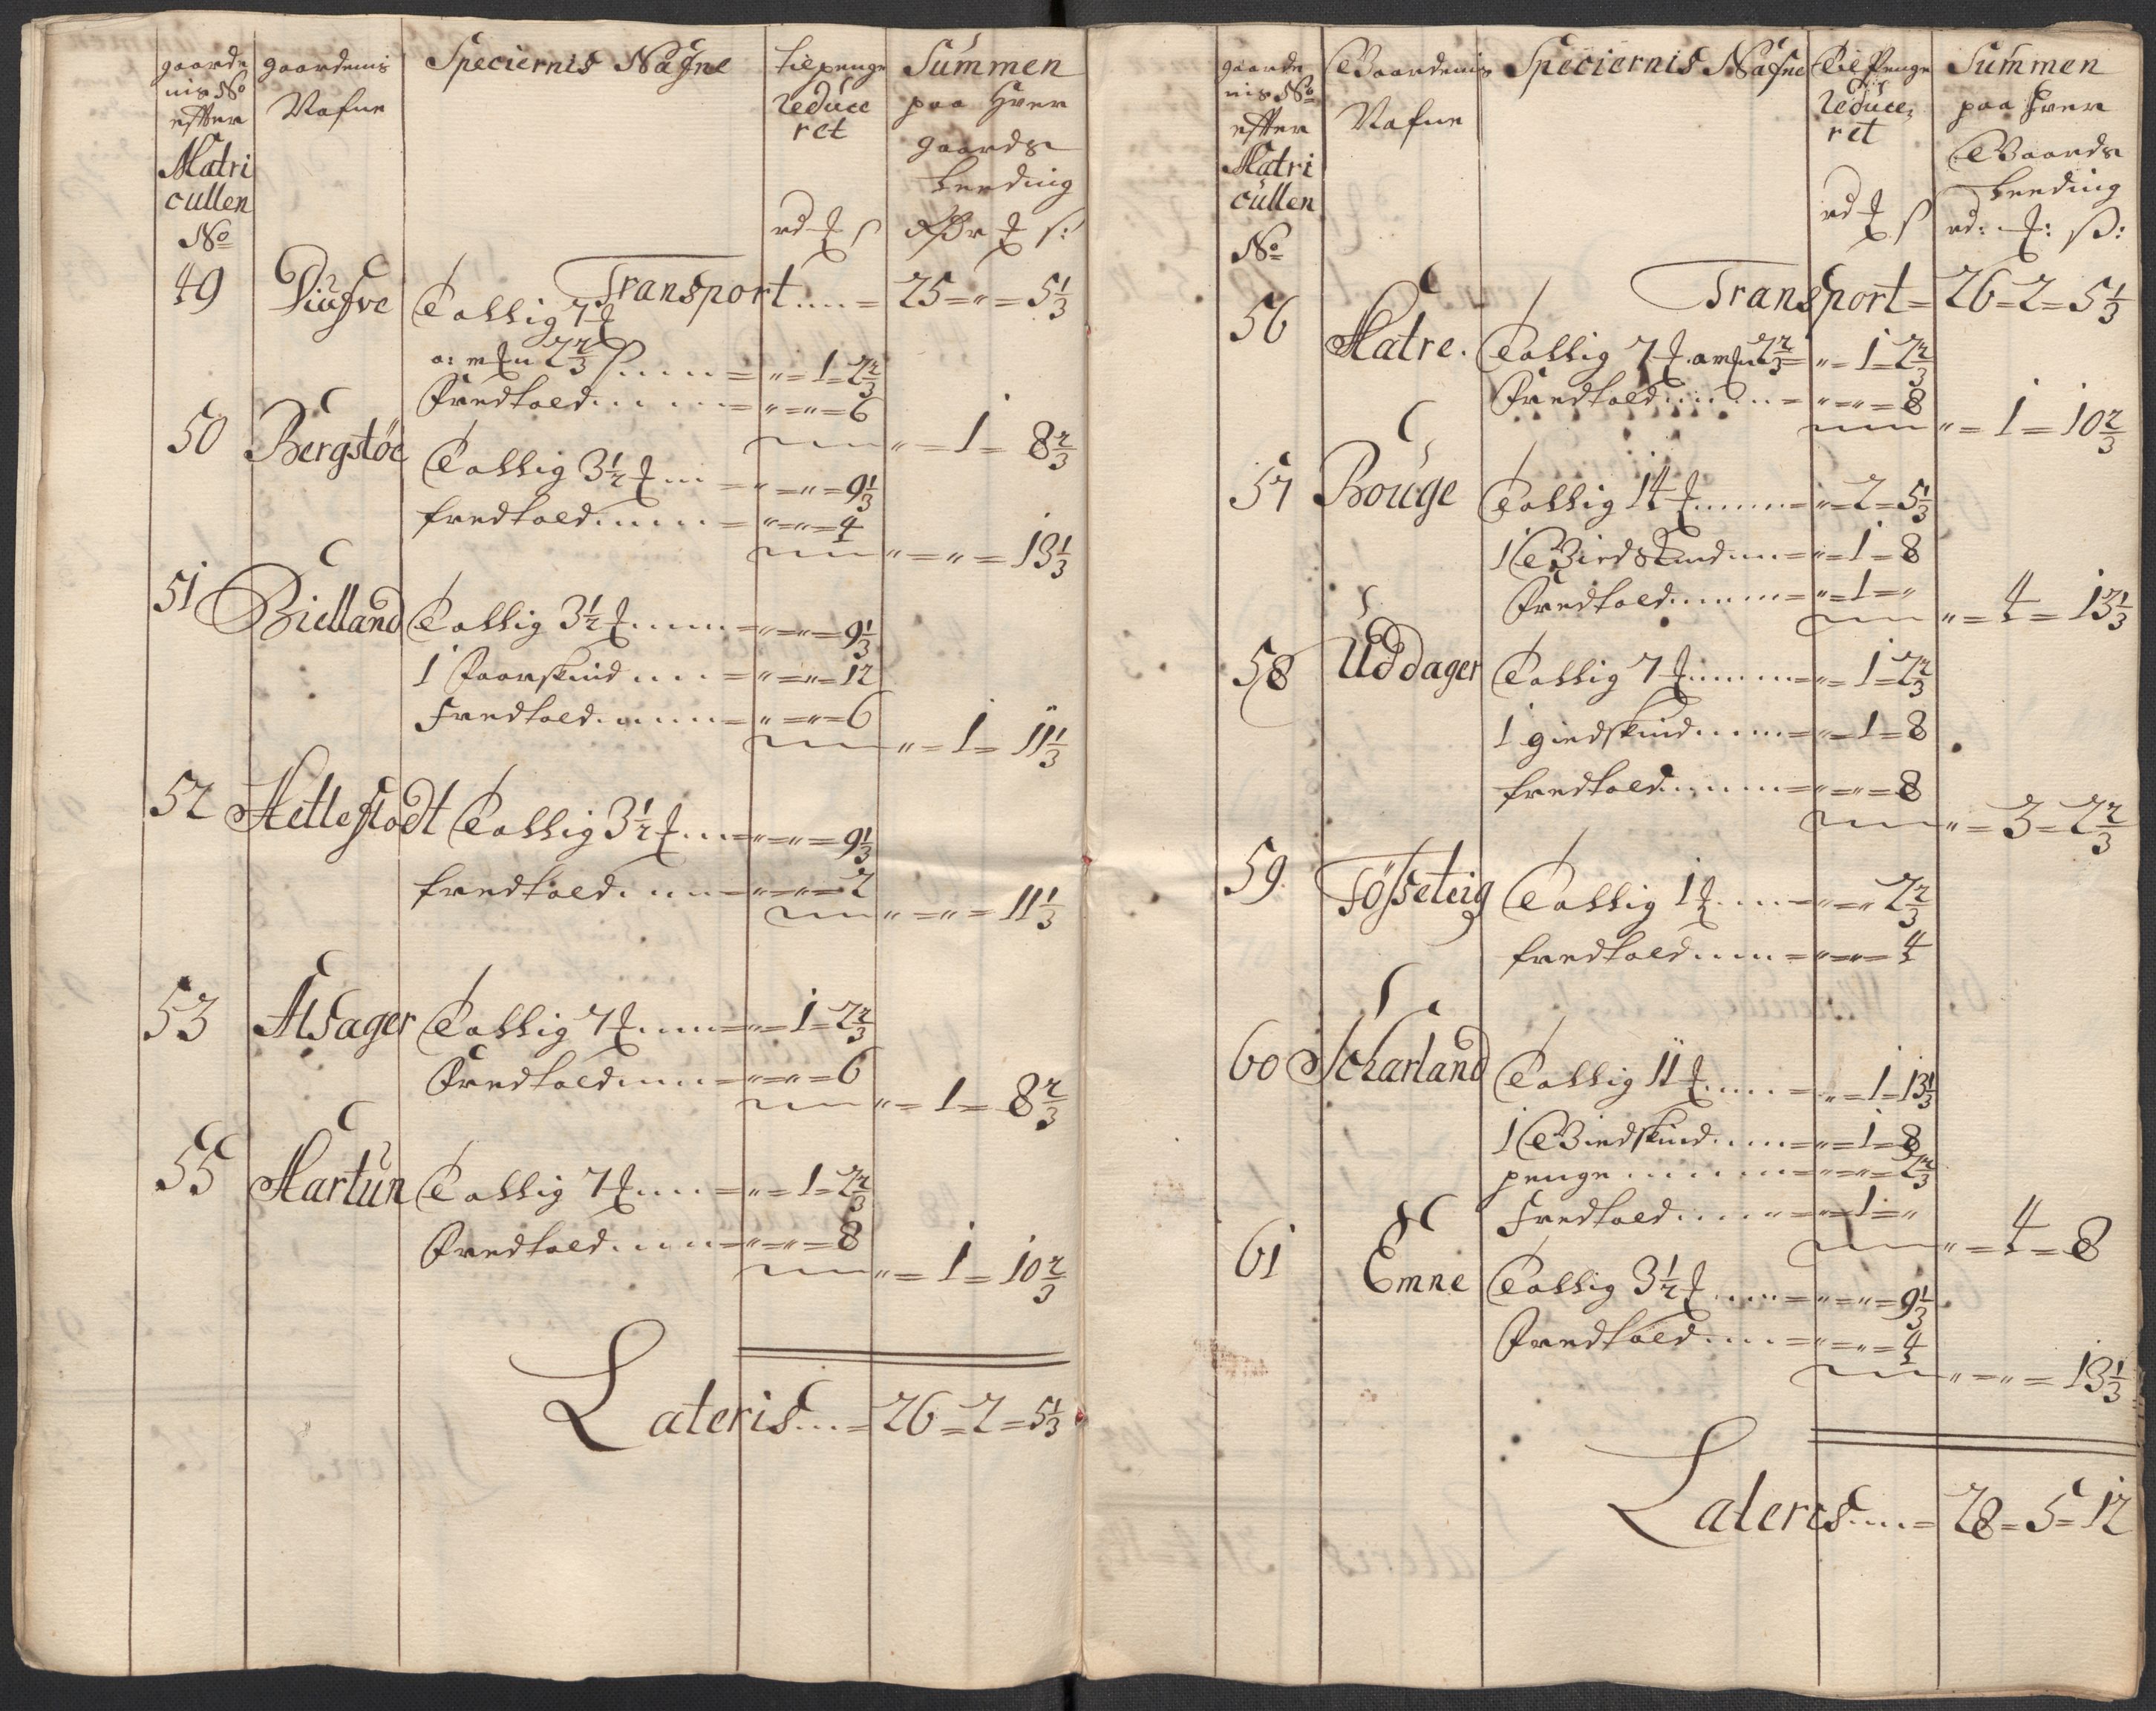 gaarde
nis No
effter
Matri
cullen
No
gaardenis
Nafne
Speciernis Nafne
til penge
reduce
ret
rd # s
Summen
paa hver
gaards
Leeding
# s:
Transport.... = 25 = " = 5 1/3
49 Diufve Tallig 7 #
a: 2 2/3 s ..... = " = 1 = 2 2/3
Fredtold...... = " = " = 6
" = 1 = 8 2/3
50 Bergstöe Tallig 3 1/2 # ... = " = " = 9 1/3
fredtold...... = " = " = 4
" = " = 13 1/3
51 Bielland Tallig 3 1/2 # ..... = " = " = 9 1/3
1 Faarskind .... = " = " = 12
Fredtold...... = " = " = 6
" = 1 = 11 1/3
52 Hettlestodt Tallig 3 1/2 # ... = " = " = 9 1/3
fredtold. .... = " = " = 2
" = " = 11 1/3
53 Alsager Tallig 7 # ..... = " = 1 = 2 2/3
Fredtold..... = " = " = 6
" = 1 = 8 2/3
55 Hartun Tallig 7 # .... = " = 1 = 2 2/3
Fredtold...... = " = " = 8
" = 1 = 10 2/3
Lateris.... = 26 = 2 = 5 1/3
gaarde
nis No
effter
Matri
cullen
No
Gaardenis
Nafne
Speciernis Nafne
Til Penge
reduce,
ret
rd # s
Summen
paa hver
Gaards
Leeding
rd: #: s:
Transport = 26 = 2 = 5 1/3
56 Hatre. Tallig 7 # 2 2/3 = " = 1 = 2 2/3
Fredtold....... = " = " = 8
" = 1 = 10 2/3
57 Bouge Tallig 14 # ....... = " = 2 = 5 1/3
1 Giedskind.... = " = 1 = 8
Fredtold....... = " = 1 = "
" = 4 = 13 1/3
58 Uddager Tallig 7 # ....... = " = 1 = 2 2/3
1 giedskind...... = " = 1 = 8
fredtold....... = " = " = 8
" = 3 = 2 2/3
59 Fösseteig Tallig 1 # .... = " = " 2 2/3
fredtold..... = " = " = 4
60 Scharland Tallig 11 # ..... = " = 1 = 13 1/3
1 Giedskind..... = " = 1 = 8
penge ....... = " = " = 2 2/3
Fredtold...... = " = 1 = "
" = 4 = 8
61 Emne Tallig 3 1/2 # .... = " = " = 9 1/3
Fredtold..... = " = " = 4
" = " = 13 1/3
Lateris.... = 28 = 5 = 12